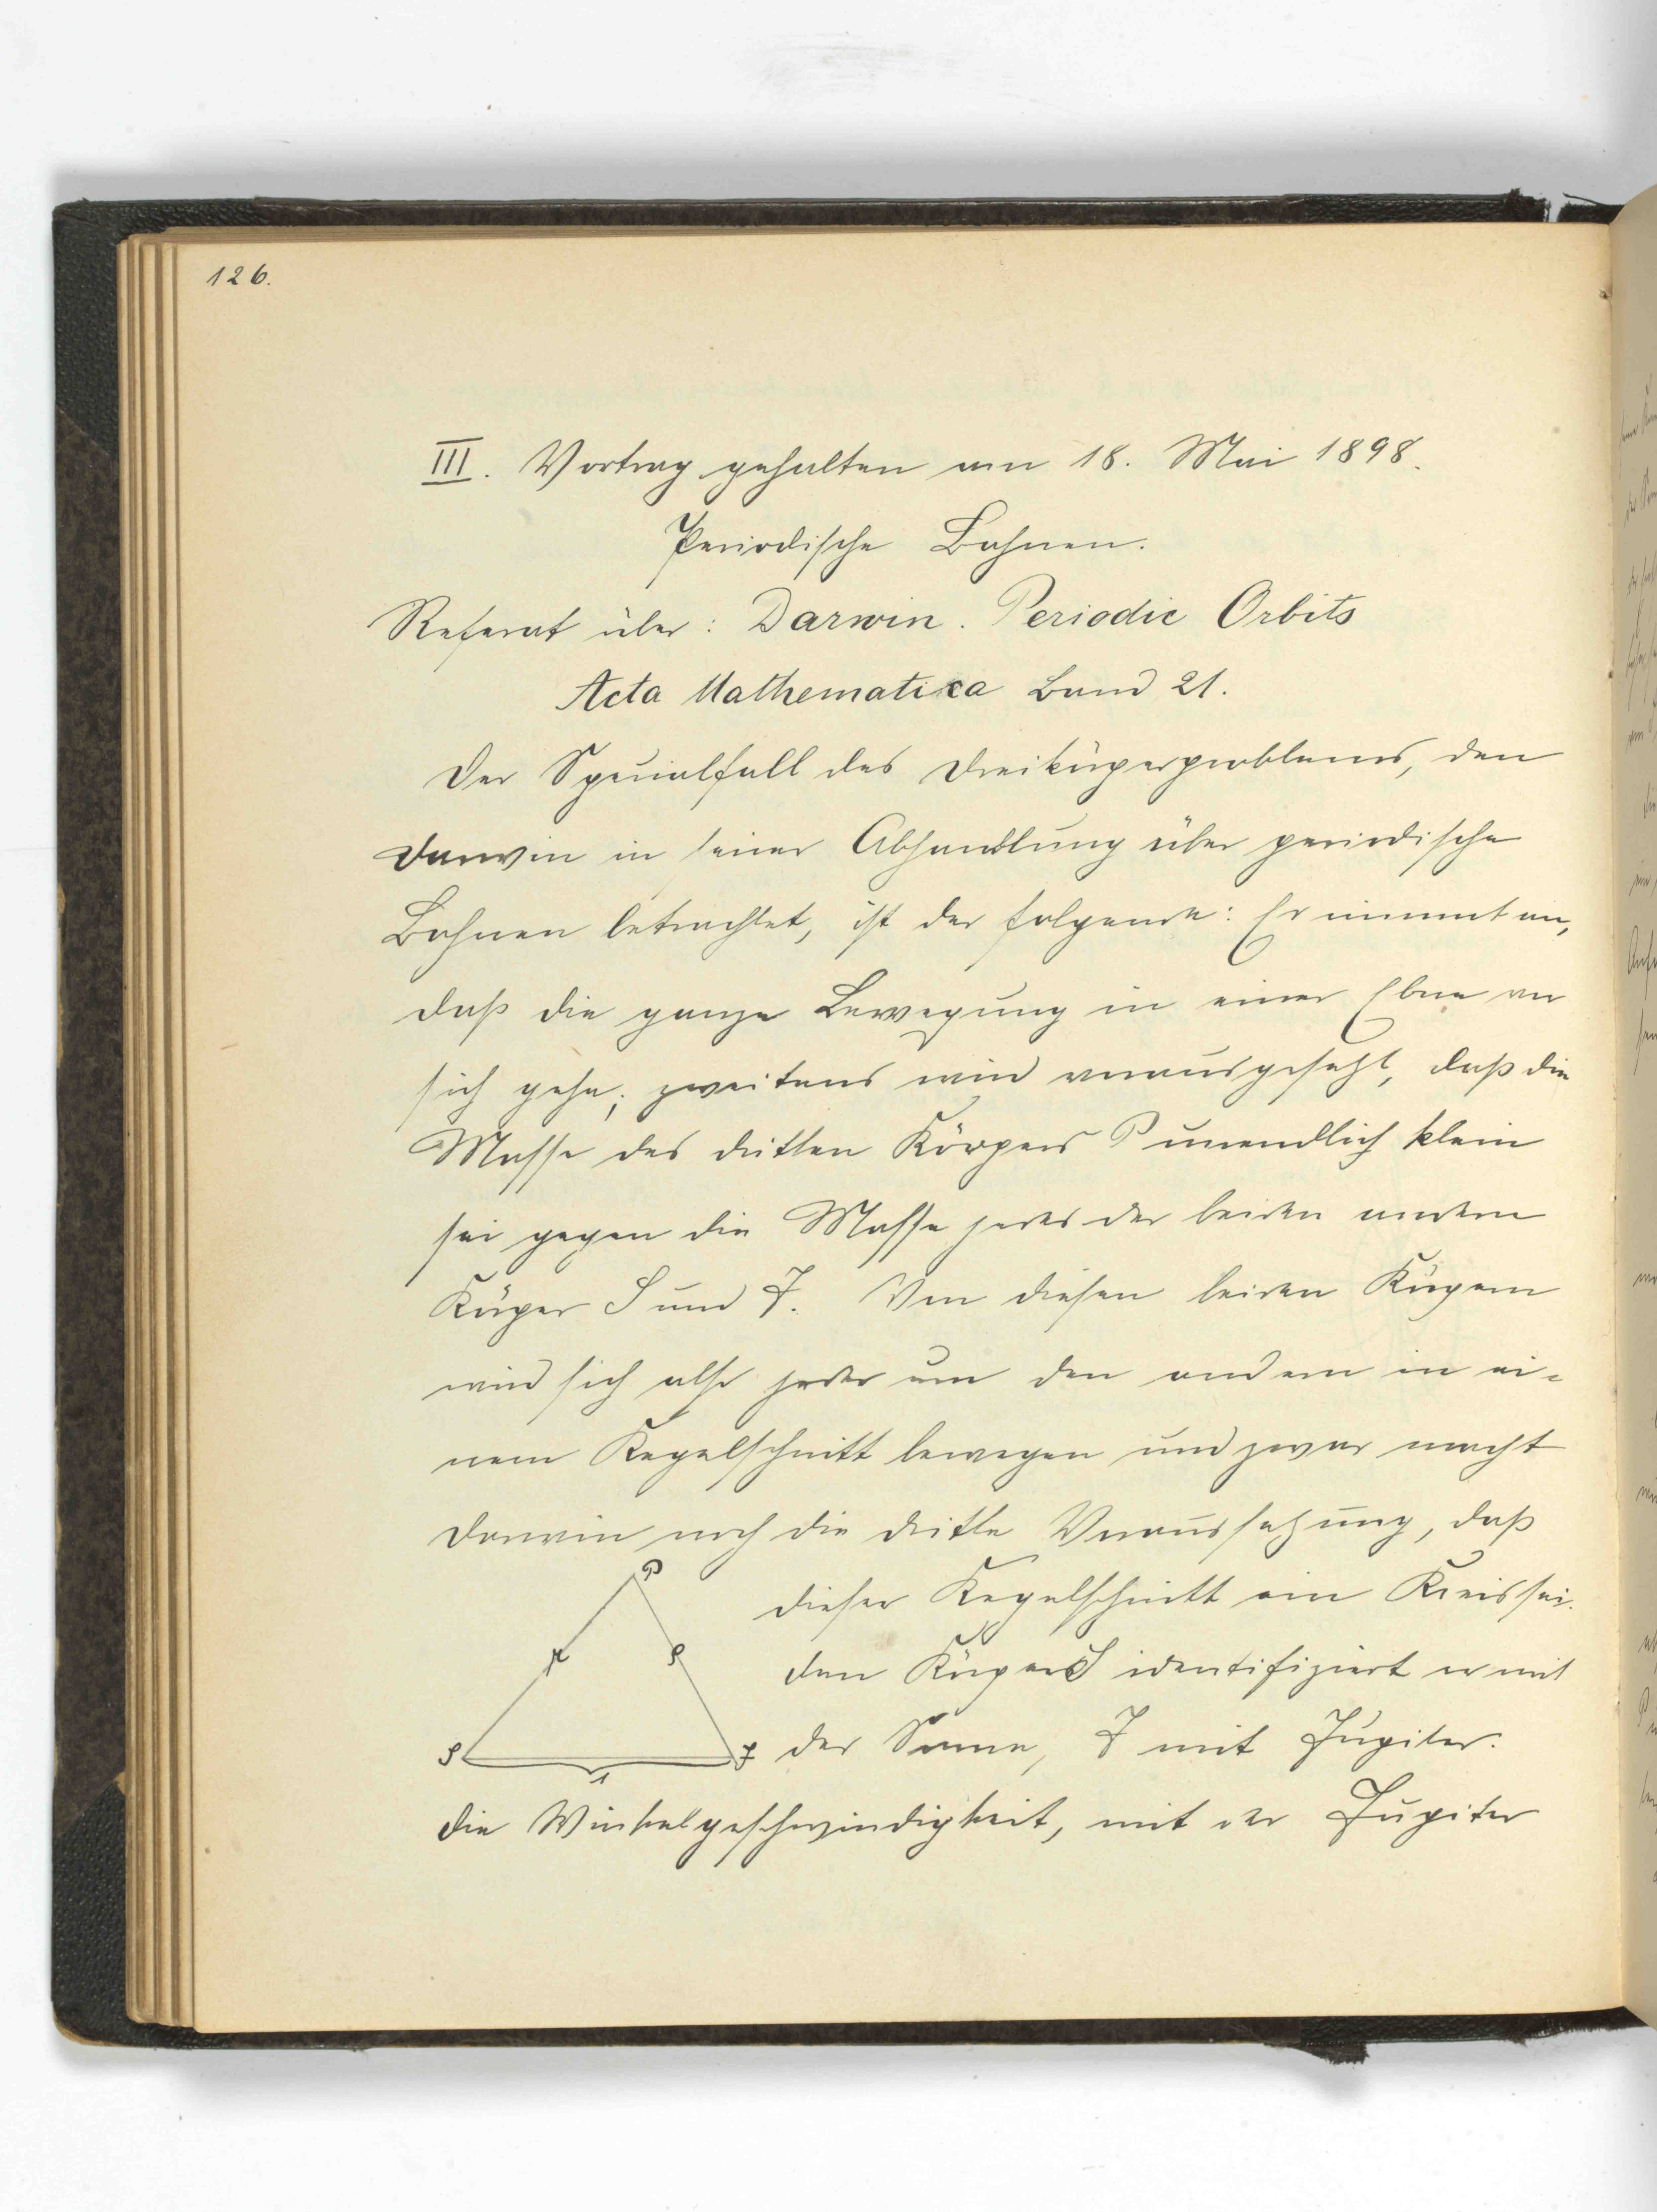 126.
III. Vortrag gehalten am 18. Mai 1898.
Periodische Bahnen.
Referat über: Darwin. Periodic Orbits
Acta Mathematica Band 21.
Der Spezialfall des Dreikörperproblems, den
Darwin in seiner Abhandlung über periodische
Bahnen betrachtet, ist der folgende: Er nimmt an,
daß die ganze Bewegung in einer Ebne vor
sich gehe; zweitens wird vorausgesetzt, daß die
Masse des dritten Körpers P unendlich klein
sei gegen die Masse jedes der beiden andern
Körper S und J. Von diesen beiden Körpern
wird sich also jeder um den andern in ei-
nem Kegelschnitt bewegen und zwar macht
Darwin noch die dritte Voraussetzung, daß
P
dieser Kegelschnitt ein Kreis sei.
r ρ
Den Körper S identifiziert er mit
S J
der Sonne, J mit Jupiter.
1
Die Winkelgeschwindigkeit, mit der Jupiter